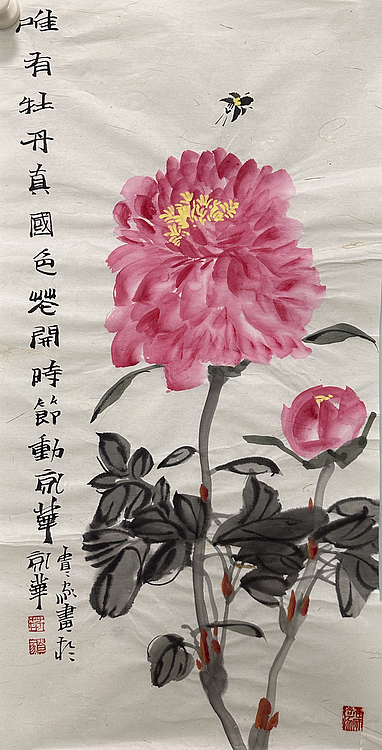 唯有牡丹真國色花開時節動京華
畫於
京華